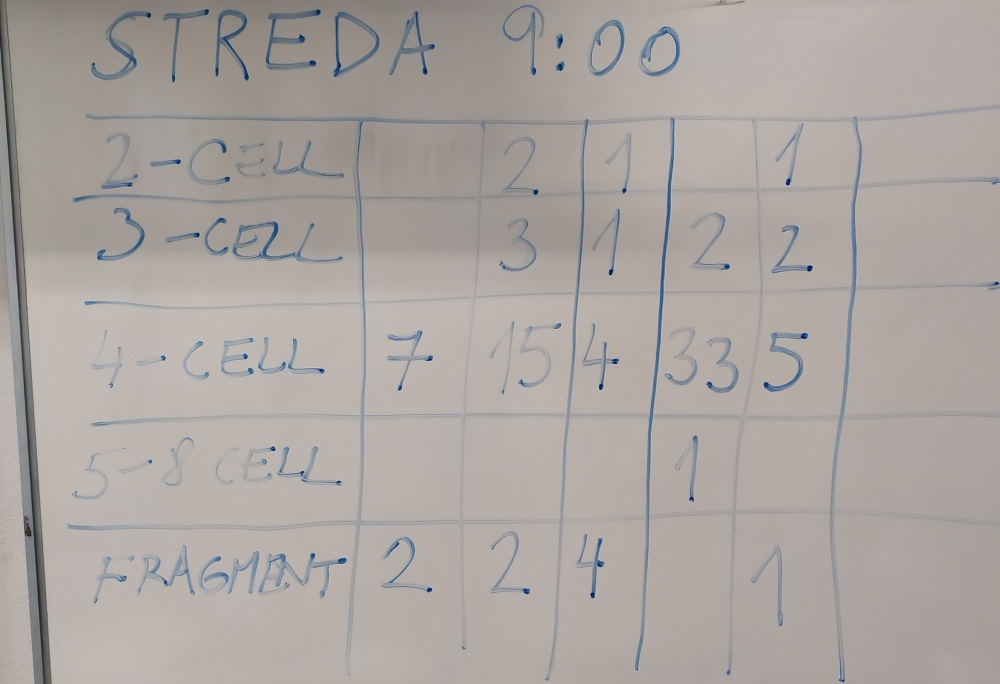 STREDA 9:00
2-CELL 2 1 1
3-CELL 3 1 2 2
4-CELL 7 15 4 33 5
5-8 CELL 1
FRAGMENT 2 2 4 1